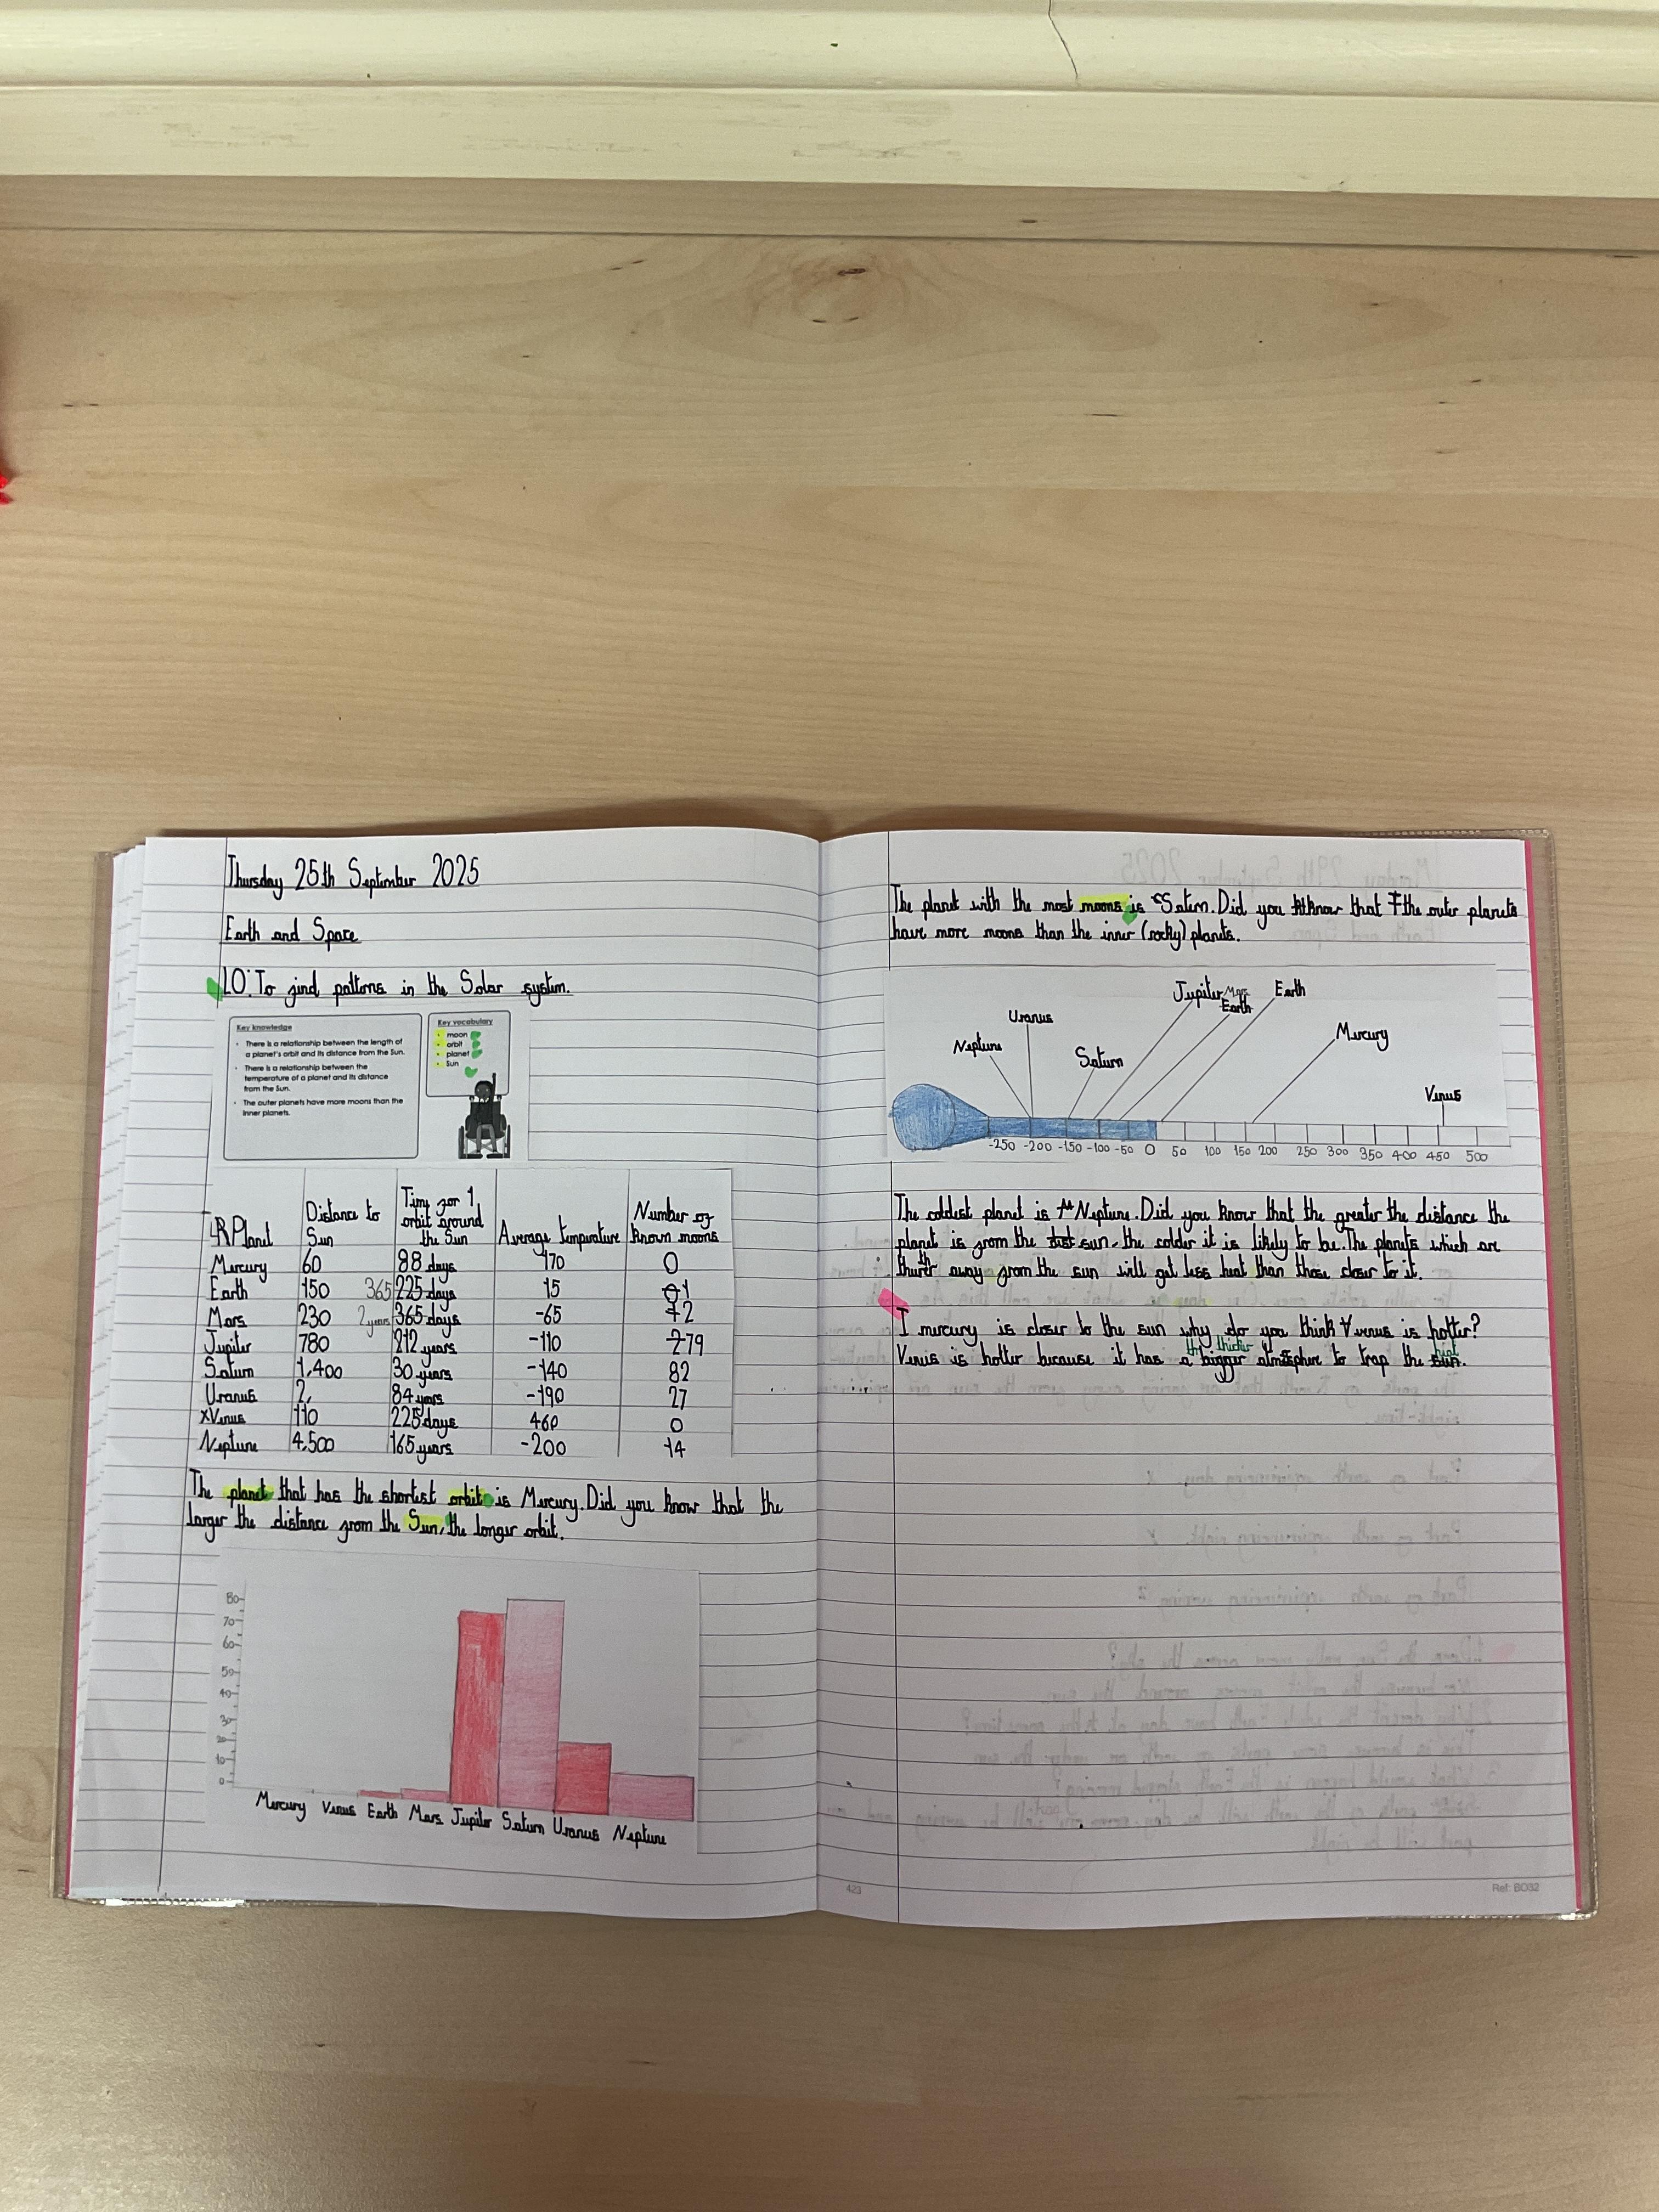 Thursday 25th September 2025
Earth and Space
LO: To find patterns in the Solar system.
Key knowledge
There is a relationship between the length of
a planet's orbit and its distance from the Sun.
There is a relationship between the
temperature of a planet and its distance
from the Sun.
The outer planets have more moons than the
inner planets.
Key vocabulary
moon
orbit
planet
Sun
Planet Distance to Sun Time for 1 orbit around the Sun Average temperature Number of known moons
Mercury 60 88 days 170 0
Earth 150 365 225 days 15 1
Mars 230 2 years 365 days -65 2
Jupiter 780 12 years -110 79
Saturn 1,400 30 years -140 82
Uranus 2, 84 years -190 27
xVenus 110 225 days 460 0
Neptune 4,500 165 years -200 14
The planet that has the shortest orbit is Mercury. Did you know that the
larger the distance from the Sun, the longer orbit.
80
70
60
50
40
30
20
10
0
Mercury Venus Earth Mars Jupiter Saturn Uranus Neptune
423
The planet with the most moons is Saturn. Did you know that the outer planets
have more moons than the inner (rocky) planets.
Neptune Uranus Saturn Jupiter Mars Earth Earth Mercury Venus
-250 -200 -150 -100 -50 0 50 100 150 200 250 300 350 400 450 500
The coldest planet is Neptune. Did you know that the greater the distance the
planet is from the sun, the colder it is likely to be. The planets which are
away from the sun will get less heat than those closer to it.
I mercury is closer to the sun why do you think Venus is hotter?
thicker heat
Venus is hotter because it has a bigger atmosphere to trap the sun.
Ref: BO32